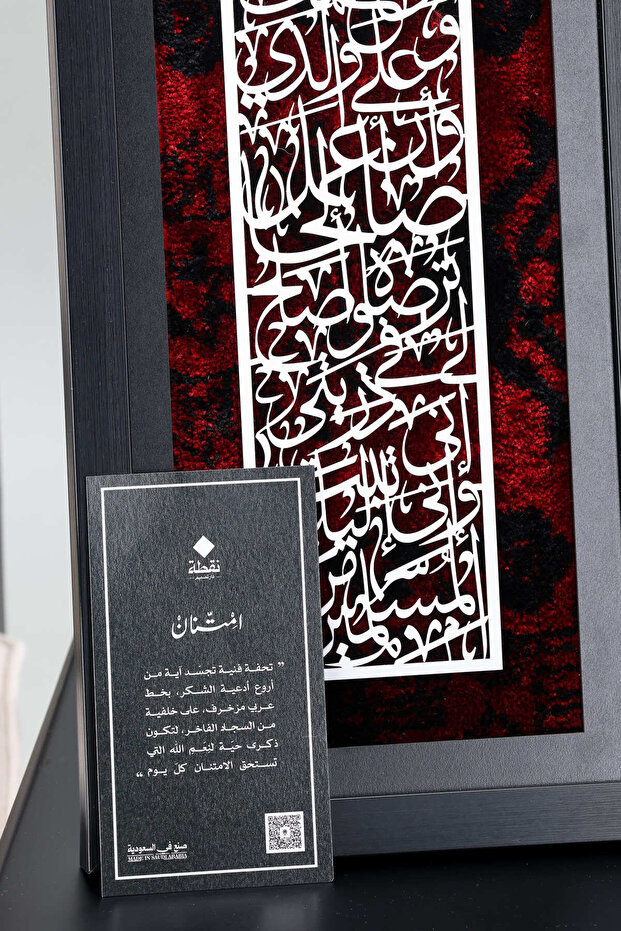 وعلى ولدي
وأن أعمل
صالحا
ترضه وأصلح
لي في ذريتي
إني
تبت إليك
وإني
من
المسلمين
نقطة
امْتنانْ
” تحفة فنية تجسّد آية من
أروع أدعية الشكر، بخط
عربي مزخرف، على خلفية
من السجاد الفاخر، لتكون
ذكرى حيّة لنعم الله التي
تستحق الامتنان كل يوم “
صنع في السعودية
MADE IN SAUDI ARABIA